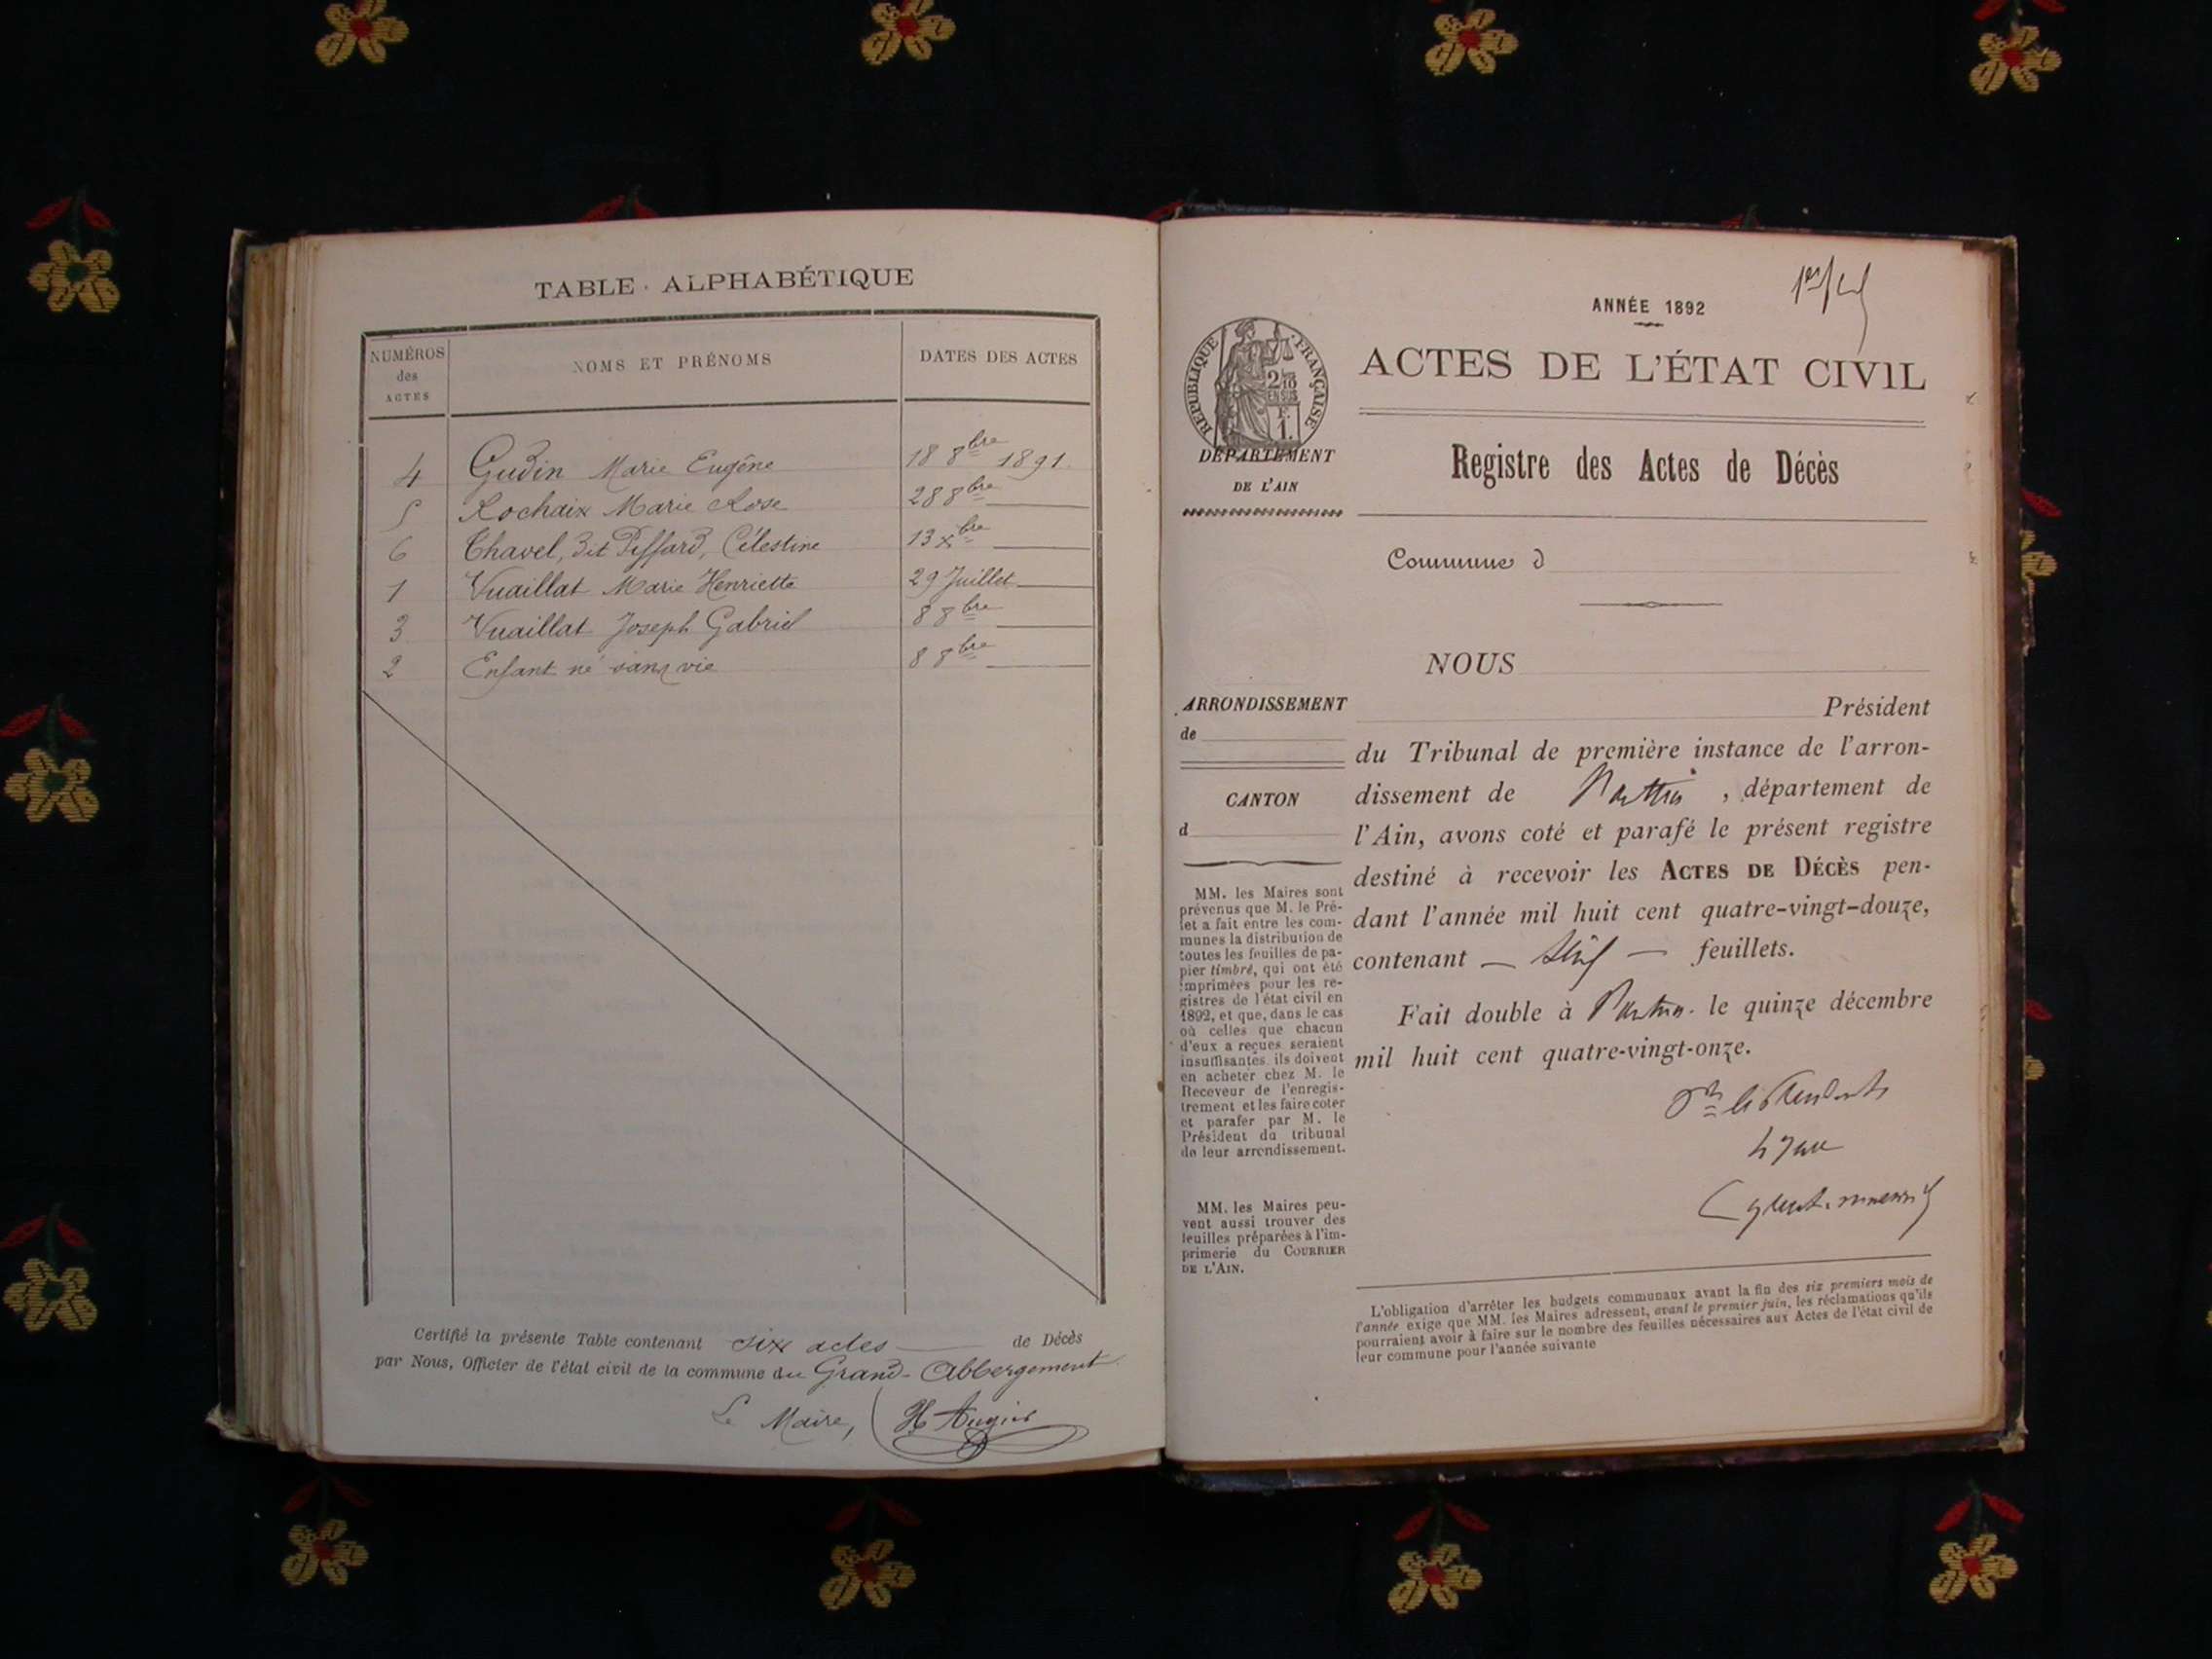 TABLE ALPHABÉTIQUE
NUMÉROS des ACTES
NOMS ET PRÉNOMS
DATES DES ACTES
4 Gudin Marie Eugêne 18 8bre 1891.
5 Rochaix Marie Rose 28 8bre
6 Chavel, dit Piffard, Célestine 13 xbre
1 Vuaillat Marie Henriette 29 Juillet
3 Vuaillat Joseph Gabriel 8 8bre
2 Enfant né sans vie 8 8bre
Certifié la présente Table contenant six actes de Décès
par Nous, Officier de l'état civil de la commune du Grand-Abbergement
Le Maire, H Augier
ANNÉE 1892
ACTES DE L'ÉTAT CIVIL
RÉPUBLIQUE FRANÇAISE
2/10
EN SUS
F.
1.
DÉPARTEMENT
DE L'AIN
Registre des Actes de Décès
Commune d
NOUS
ARRONDISSEMENT
de
CANTON
d
MM. les Maires sont
prévenus que M. le Pré-
fet a fait entre les com-
munes la distribution de
toutes les feuilles de pa-
pier timbré, qui ont été
imprimées pour les re-
gistres de l'état civil en
1892, et que, dans le cas
où celles que chacun
d'eux a reçues seraient
insuffisantes, ils doivent
en acheter chez M. le
Receveur de l'enregis-
trement et les faire coter
et parafer par M. le
Président du tribunal
de leur arrondissement.
MM. les Maires peu-
vent aussi trouver des
feuilles préparées à l'im-
primerie du COURRIER
DE L'AIN.
Président
du Tribunal de première instance de l'arron-
dissement de Nantua, département de
l'Ain, avons coté et parafé le présent registre
destiné à recevoir les ACTES DE DÉCÈS pen-
dant l'année mil huit cent quatre-vingt-douze,
contenant feuillets.
Fait double à Nantua le quinze décembre
mil huit cent quatre-vingt-onze.
L'obligation d'arrêter les budgets communaux avant la fin des six premiers mois de
l'année exige que MM. les Maires adressent, avant le premier juin, les réclamations qu'ils
pourraient avoir à faire sur le nombre des feuilles nécessaires aux Actes de l'état civil de
leur commune pour l'année suivante